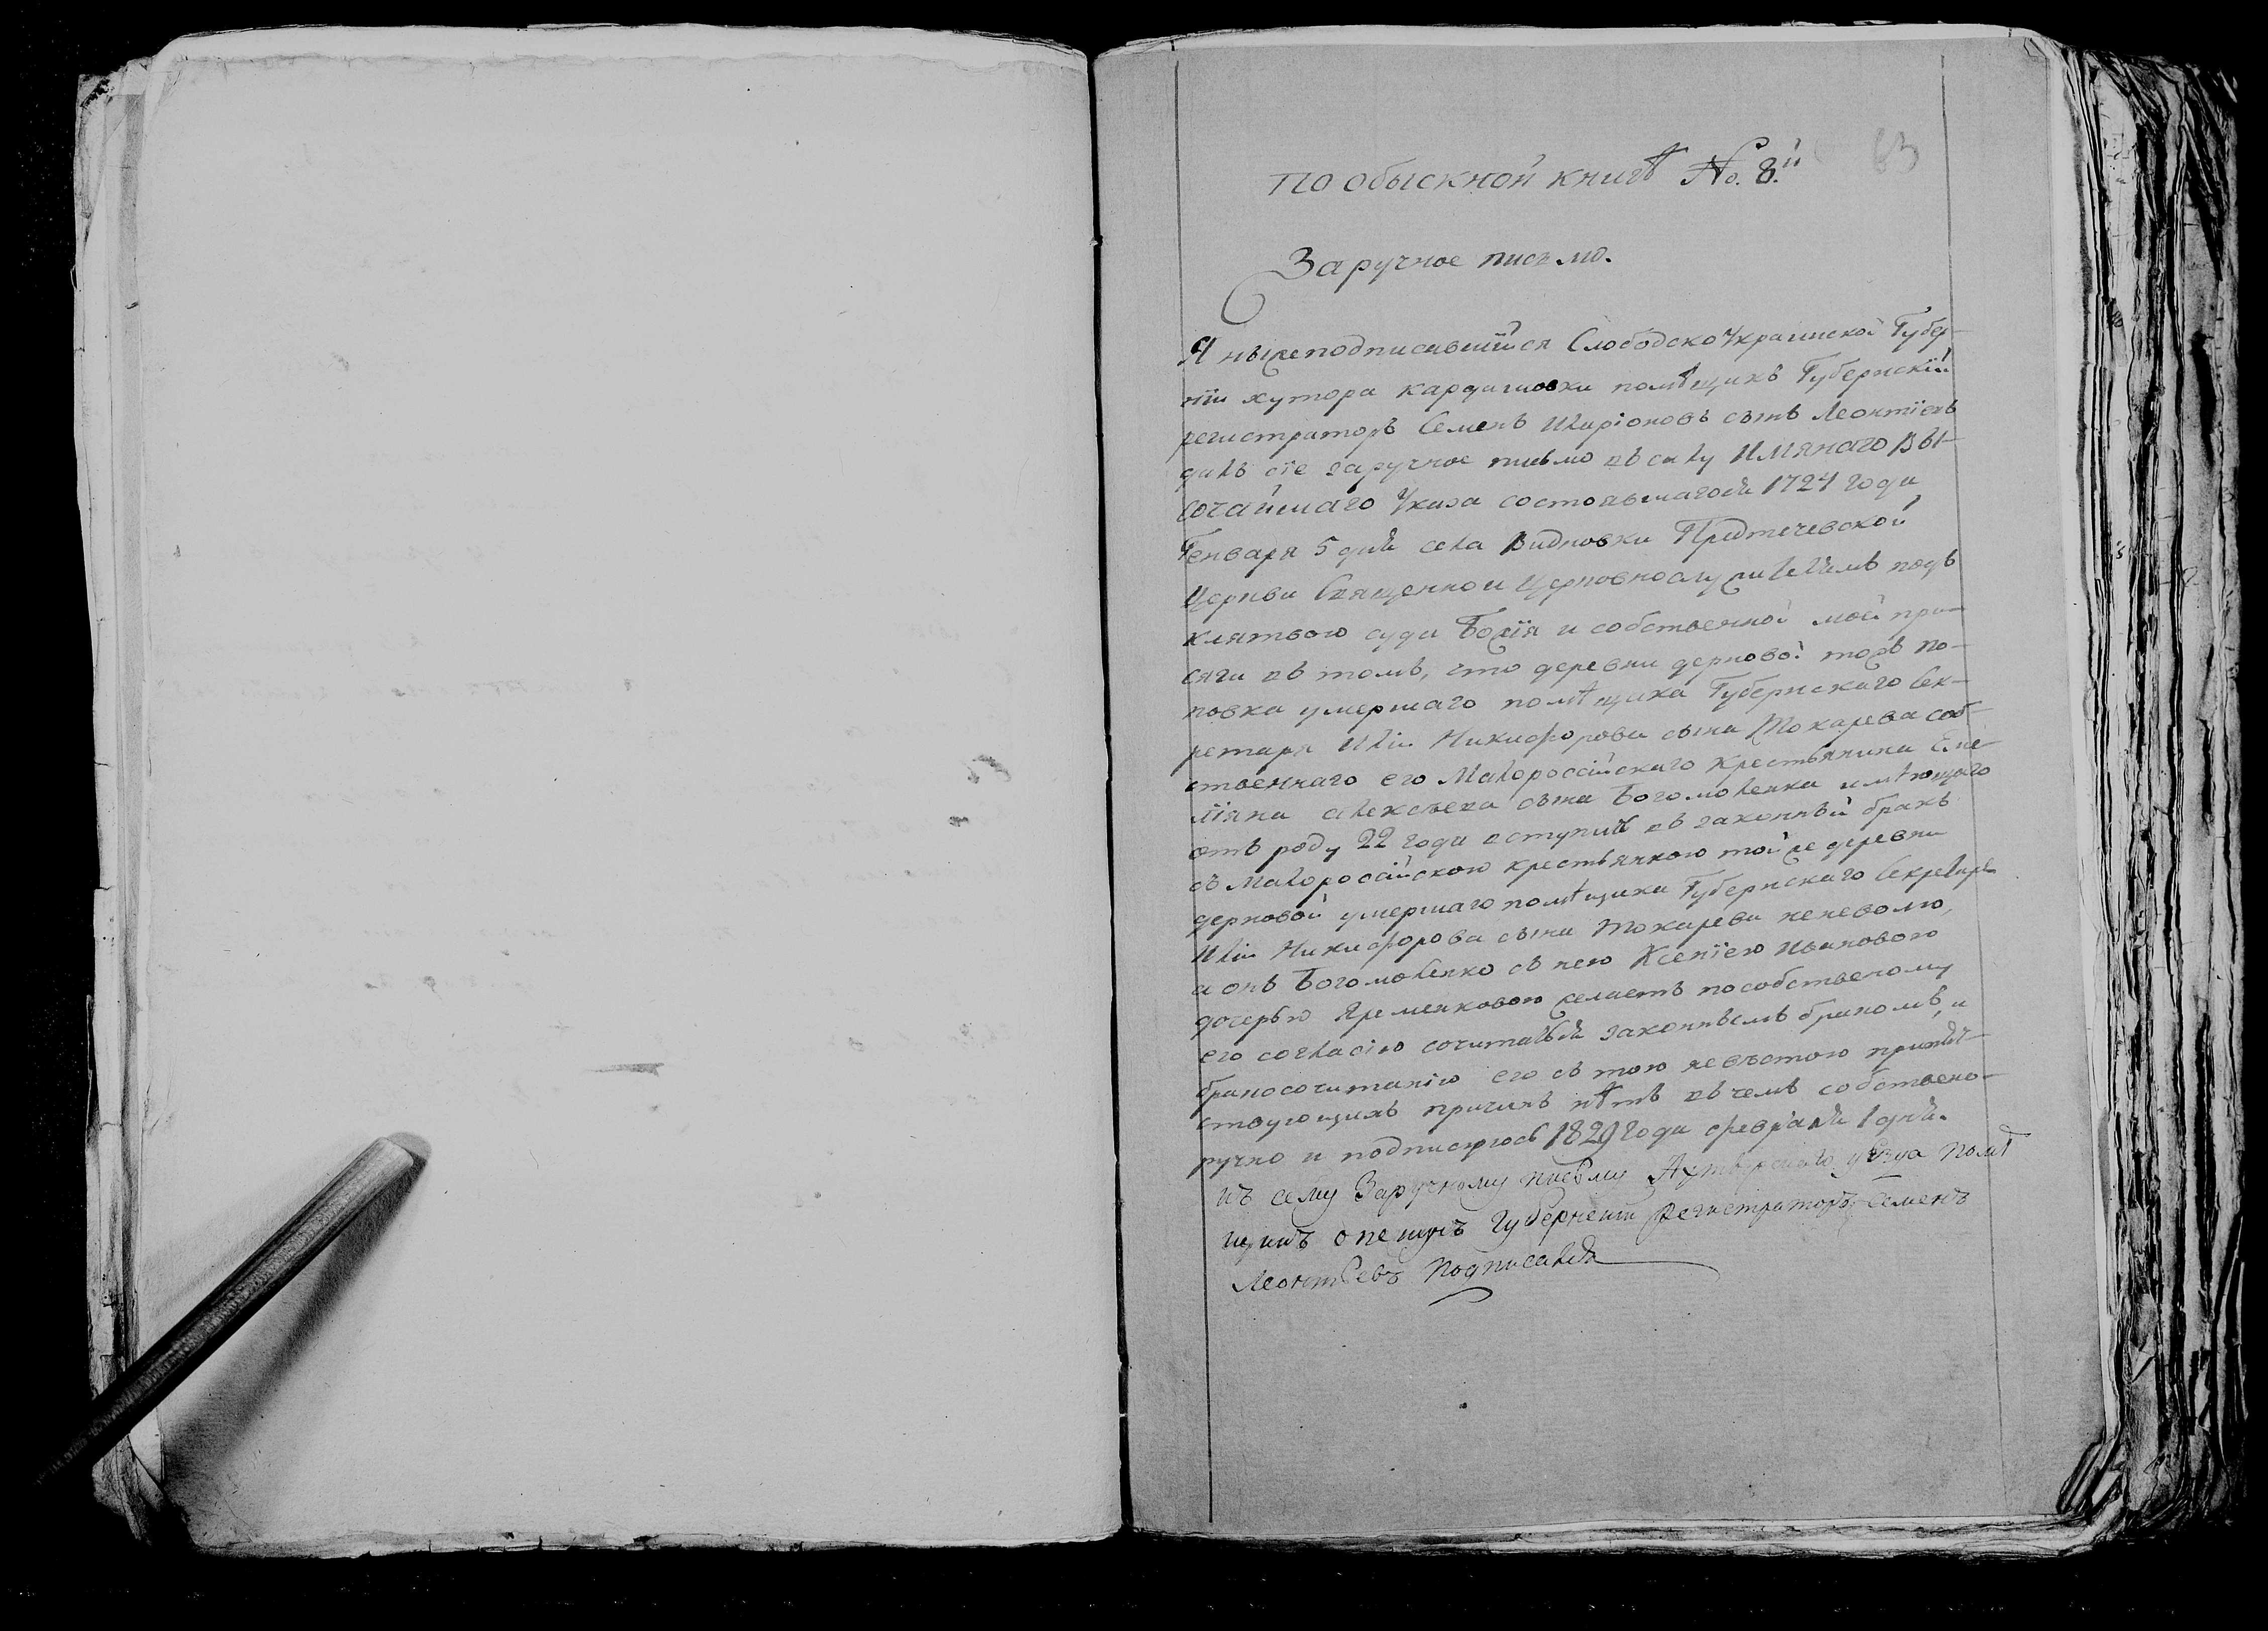 63
по обыскной книгѣ No. 8.й
Заручное писъмо.
Я нижеподписавшійся Слободско Украинской Губер-
нїи хутора Кардашовки помѣщикъ Губернскїй
регистраторъ Семенъ Иларіоновъ сынъ Леонтїевъ
далъ сїе заручное писмо въ силу Имянаго Вы-
сочайшаго Указа состоявшагося 1724 года
Генваря 5 дня села Видновки Предтечевской
Церкви Священно и Церковнослужителямъ подъ
клятвою суда Божїя и собственной моей при-
сяги въ томъ, что деревни дерновой тожъ по-
повка умершаго помѣщика Губернскаго Сек-
ретаря Иліи Никифорова сына Токарева соб-
ственнаго его Малороссійскаго крестьянина Еме-
лїяна Алексѣева сына Богомоленка имѣющаго
отъ роду 22 года вступить въ законный бракъ
съ Малоросійскою крестьянкою той же деревни
дерновой умершаго помѣщика Губернскаго Секретаря
Иліи Никифорова сына Токарева неневолю,
а онъ Богомоленко съ нею Ксенїею Ивановою
дочерью Яременковою желаетъ по собственому
его согласію сочитатся законнымъ бракомъ, и
бракосочитанію его съ тою невѣстою препят-
ствующихъ причинъ нѣтъ въ чемъ собствено-
ручно и подписуюсь 1829 года февраля 1 дня.
къ сему Заручному писму Ахтырскаго уезда помѣ
щикъ опекунъ Губернскій Регистраторъ Семенъ
Леонтьевъ подписался